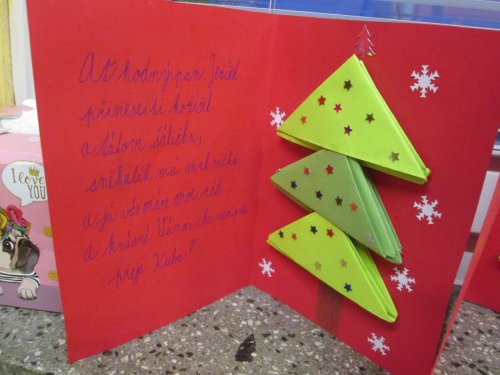 Ať hodný pan Ježíšek
přinese ti kožíšek
a tátovi šáličku,
sněhulák má mrkvičku
a já vás mám moc rád
a krásné Vánoce
přeje Kuba
I love
YOU